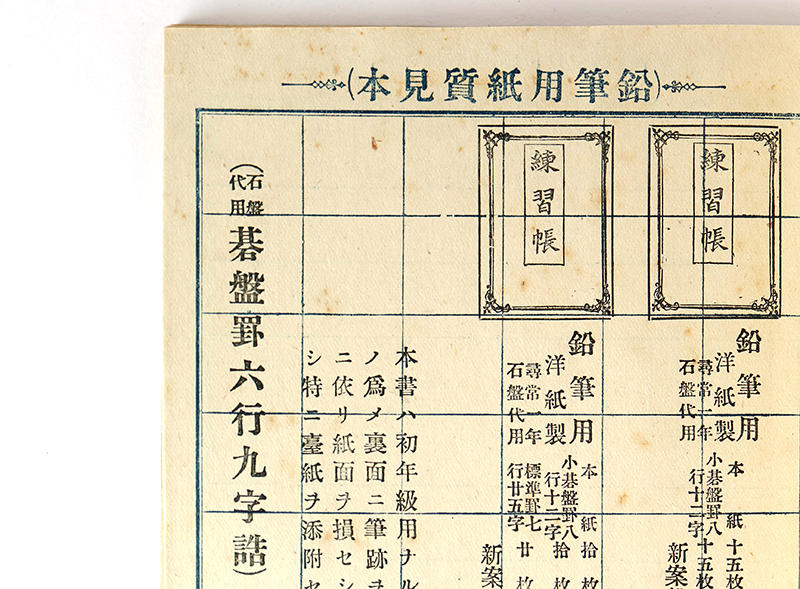 本見質紙用筆鉛
練習帳
鉛筆用
洋紙製
尋常一年
石盤代用
本紙十五枚
小碁盤罫八十五枚
行十二字
新案
練習帳
鉛筆用
洋紙製
尋常一年
石盤代用
本紙拾枚
小碁盤罫八拾枚
行十二字
標準罫七廿枚
行廿五字
新案
本書ハ初年級用ナル
ノ爲メ裏面ニ筆跡ヲ
ニ依リ紙面ヲ損セシ
シ特ニ臺紙ヲ添附セ
(石盤代用 碁盤罫六行九字詰)